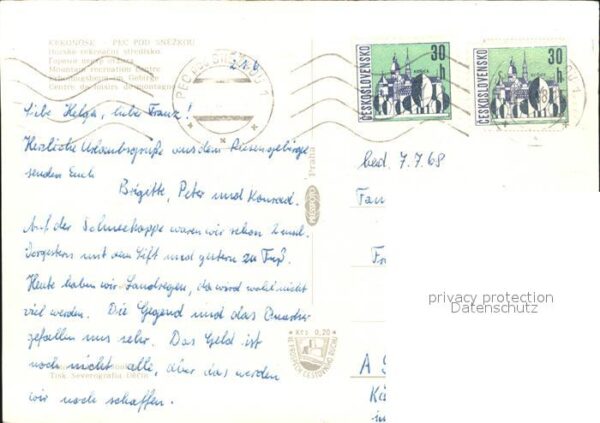 KRKONOŠE - PEC POD SNĚŽKOU
Horské rekreační středisko
Mountain recreation Centre
Centre de loisirs de montagne
PEC POD SNĚŽKOU 1
ČESKOSLOVENSKO
30 h
ČESKOSLOVENSKO
30 h
Liebe Helga, lieber Franz!
Herzliche Urlaubsgrüße aus dem Riesengebirge
senden Euch
Brigitte, Peter und Konrad.
Auf der Schneekoppe waren wir schon 2 mal.
Vorgestern mit dem Lift und gestern zu Fuß.
Heute haben wir Landregen, da wird wohl nicht
viel werden. Die Gegend und das Quartier
gefallen uns sehr. Das Geld ist
noch nicht alle, aber das werden
wir noch schaffen.
Tisk Severografia Děčín
PRESSFOTO
Praha
Kčs 0,20
bed. 7.7.68
Fam
Fr
A
privacy protection
Datenschutz